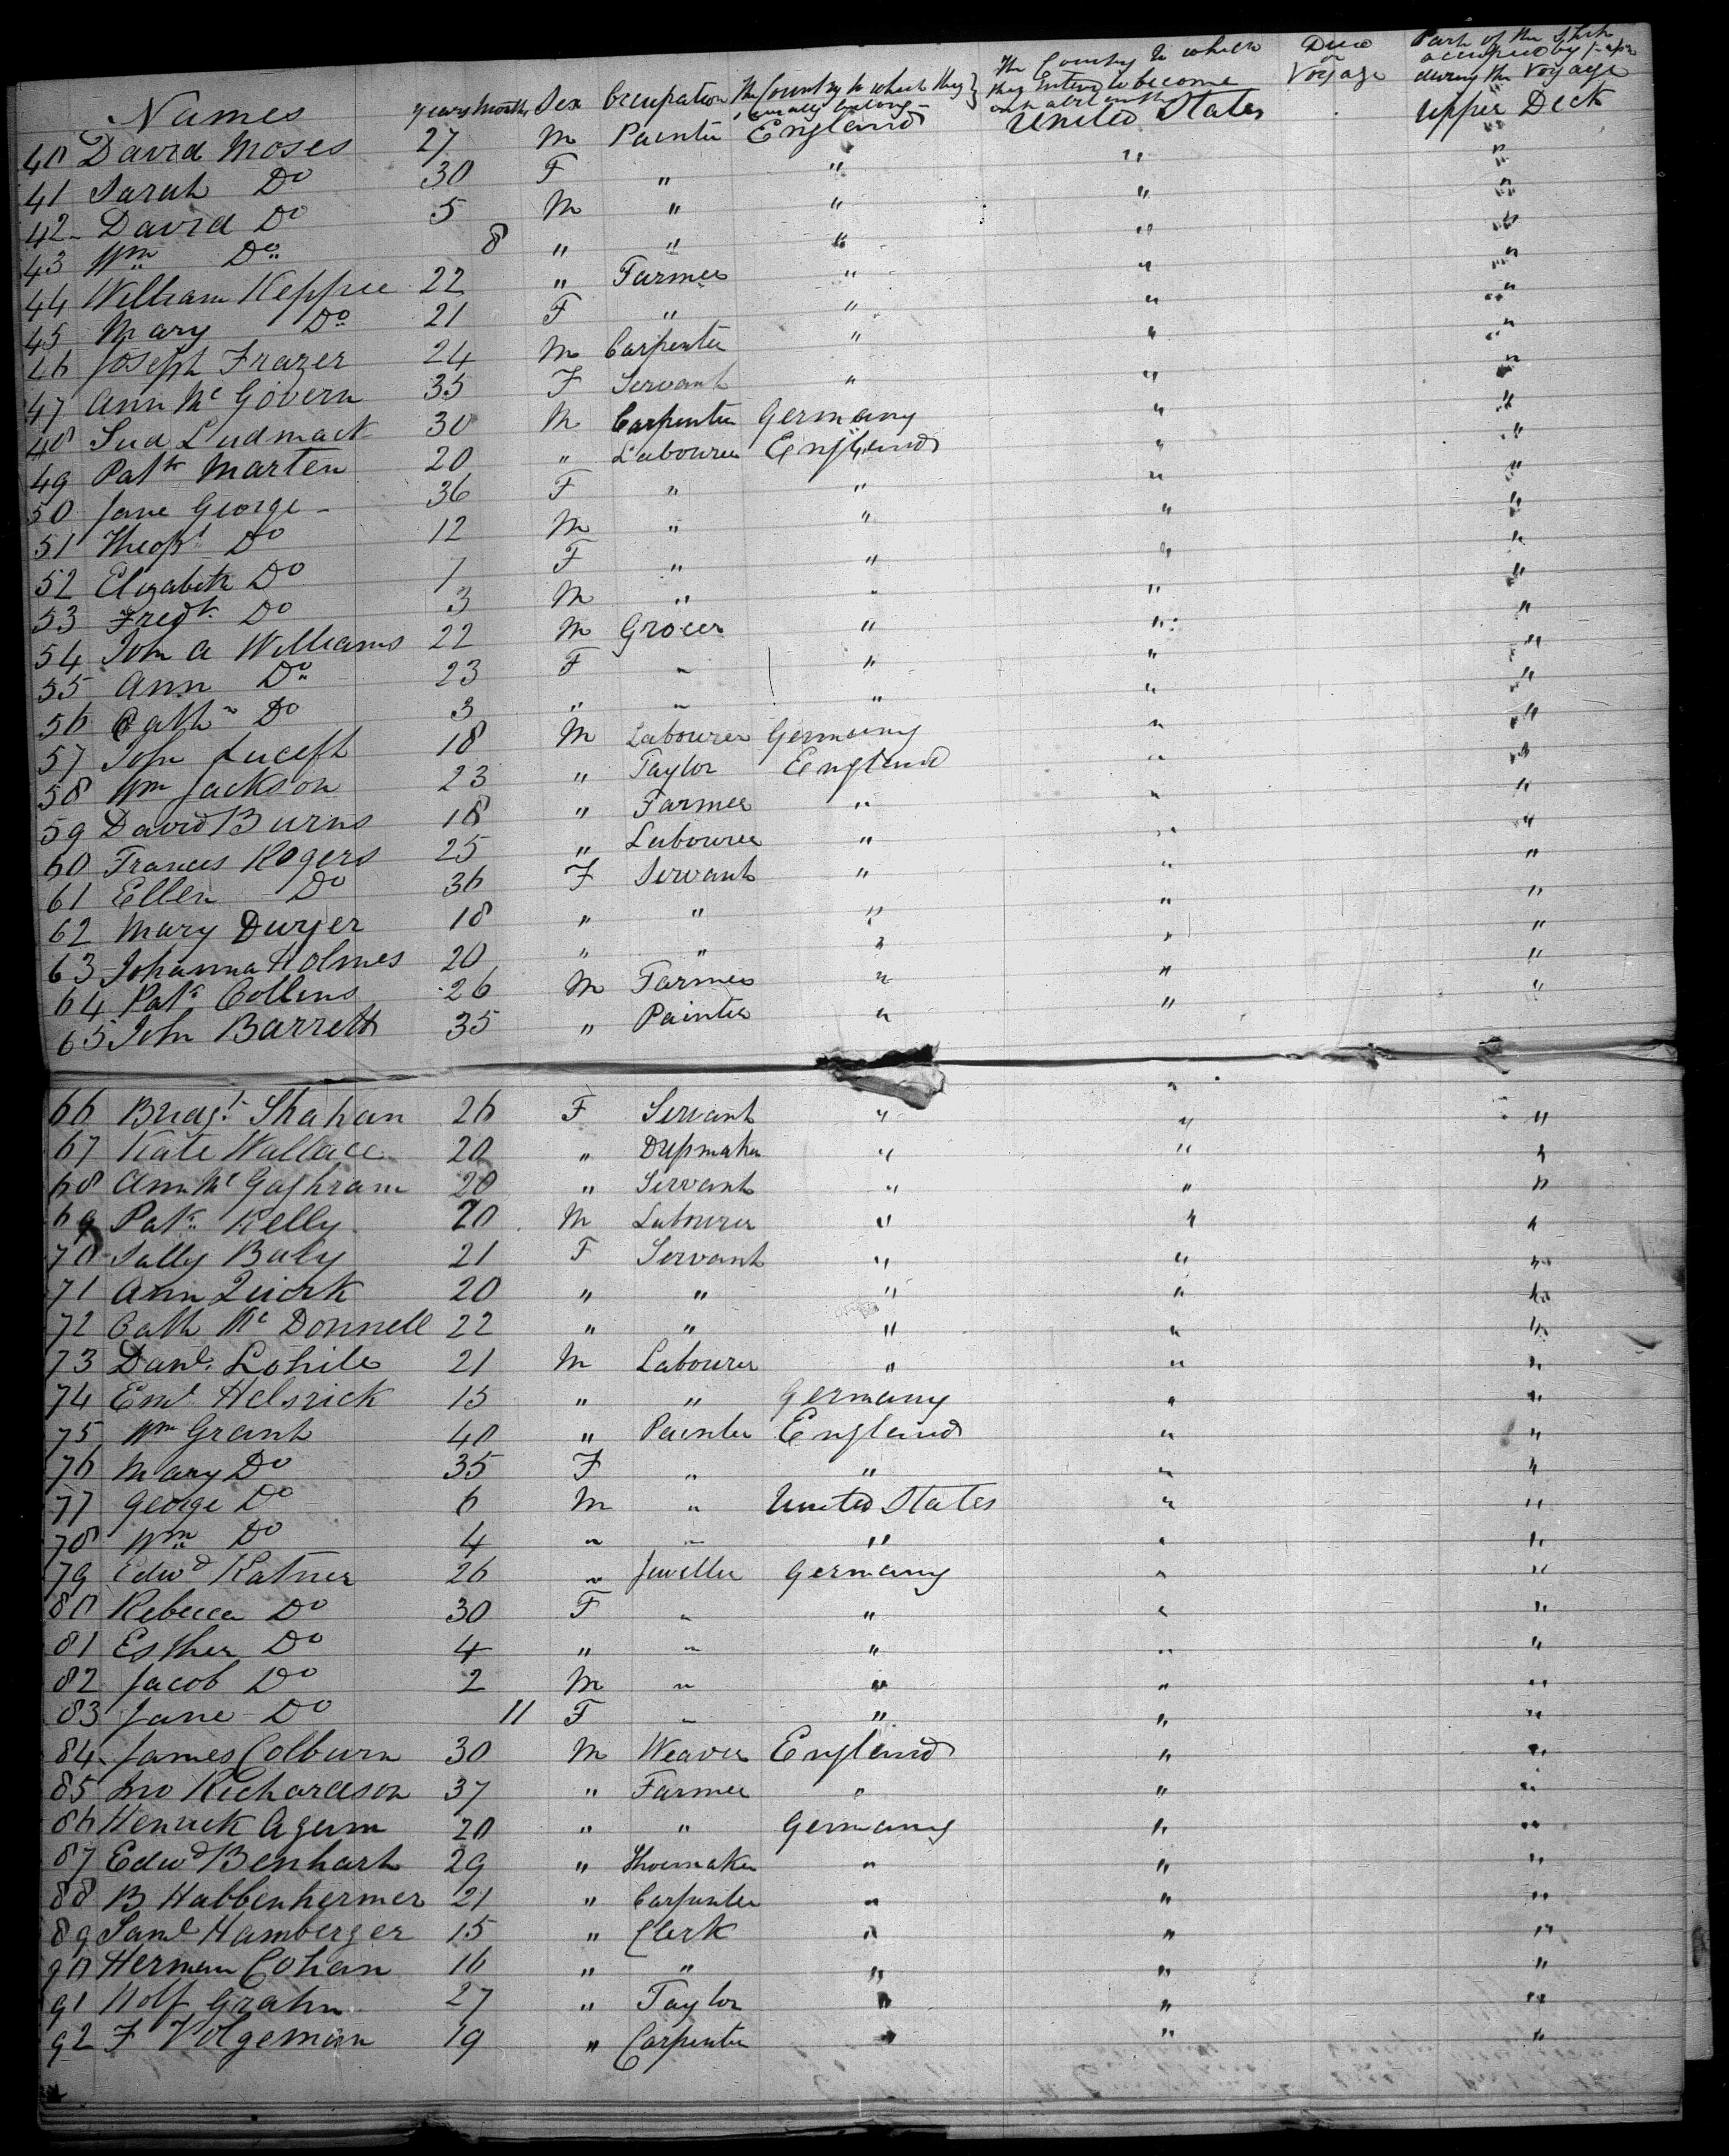 Names Years Months Sex Occupation The Country to which they usually belong The Country to which they Intend to become inhabitants Died on Voyage Part of the Ship occupied by during the Voyage
40 David Moses 27 M Painter England United States Upper Deck
41 Sarah Do 30 F " " " "
42 David Do 5 M " " " "
43 Wm Do 8 " " " " "
44 William Keppie 22 " Farmer " " "
45 Mary Do 21 F " " " "
46 Joseph Frazer 24 M Carpenter " " "
47 Ann Mc Govern 35 F Servant " " "
48 Sud Ludmack 30 M Carpenter Germany " "
49 Patk Marten 20 " Labourer England " "
50 Jane George 36 F " " " "
51 Theops Do 12 M " " " "
52 Elizabeth Do 7 F " " " "
53 Fredk Do 3 M " " " "
54 John A Williams 22 M Grocer " " "
55 Ann Do 23 F " " " "
56 Cath Do 3 " " " " "
57 John 18 M Labourer Germany " "
58 Wm Jackson 23 " Taylor England " "
59 David Burns 18 " Farmer " " "
60 Frances Rogers 25 " Labourer " " "
61 Ellen Do 36 F Servant " " "
62 Mary Dwyer 18 " " " " "
63 Johanna Holmes 20 " " " " "
64 Patk Collins 26 M Farmer " " "
65 John Barrett 35 " Painter " " "
66 Bridgt Shahan 26 F Servant " " "
67 Kate Wallace 20 " Dressmaker " " "
68 Ann Mc Gaghram 20 " Servant " " "
69 Patk Kelly 20 M Labourer " " "
70 Sally Baly 21 F Servant " " "
71 Ann Quirk 20 " " " " "
72 Cath Mc Donnell 22 " " " " "
73 Danl Lohile 21 M Labourer " " "
74 Eml Helsrick 15 " " Germany " "
75 Wm Grant 40 " Painter England " "
76 Mary Do 35 F " " " "
77 George Do 6 M " United States " "
78 Wm Do 4 " " " " "
79 Edwd Katner 26 " Jeweller Germany " "
80 Rebecca Do 30 F " " " "
81 Esther Do 4 " " " " "
82 Jacob Do 2 M " " " "
83 Jane Do 11 F " " " "
84 James Colburn 30 M Weaver England " "
85 Jno Richardson 37 " Farmer " " "
86 Henrick Agum 20 " " Germany " "
87 Edwd Benhart 29 " Shoemaker " " "
88 B Habbenhermer 21 " Carpenter " " "
89 Saml Hamberger 15 " Clerk " " "
90 Herman Cohan 16 " " " " "
91 Wolf Grahn 27 " Taylor " " "
92 F Volgeman 19 " Carpenter " " "